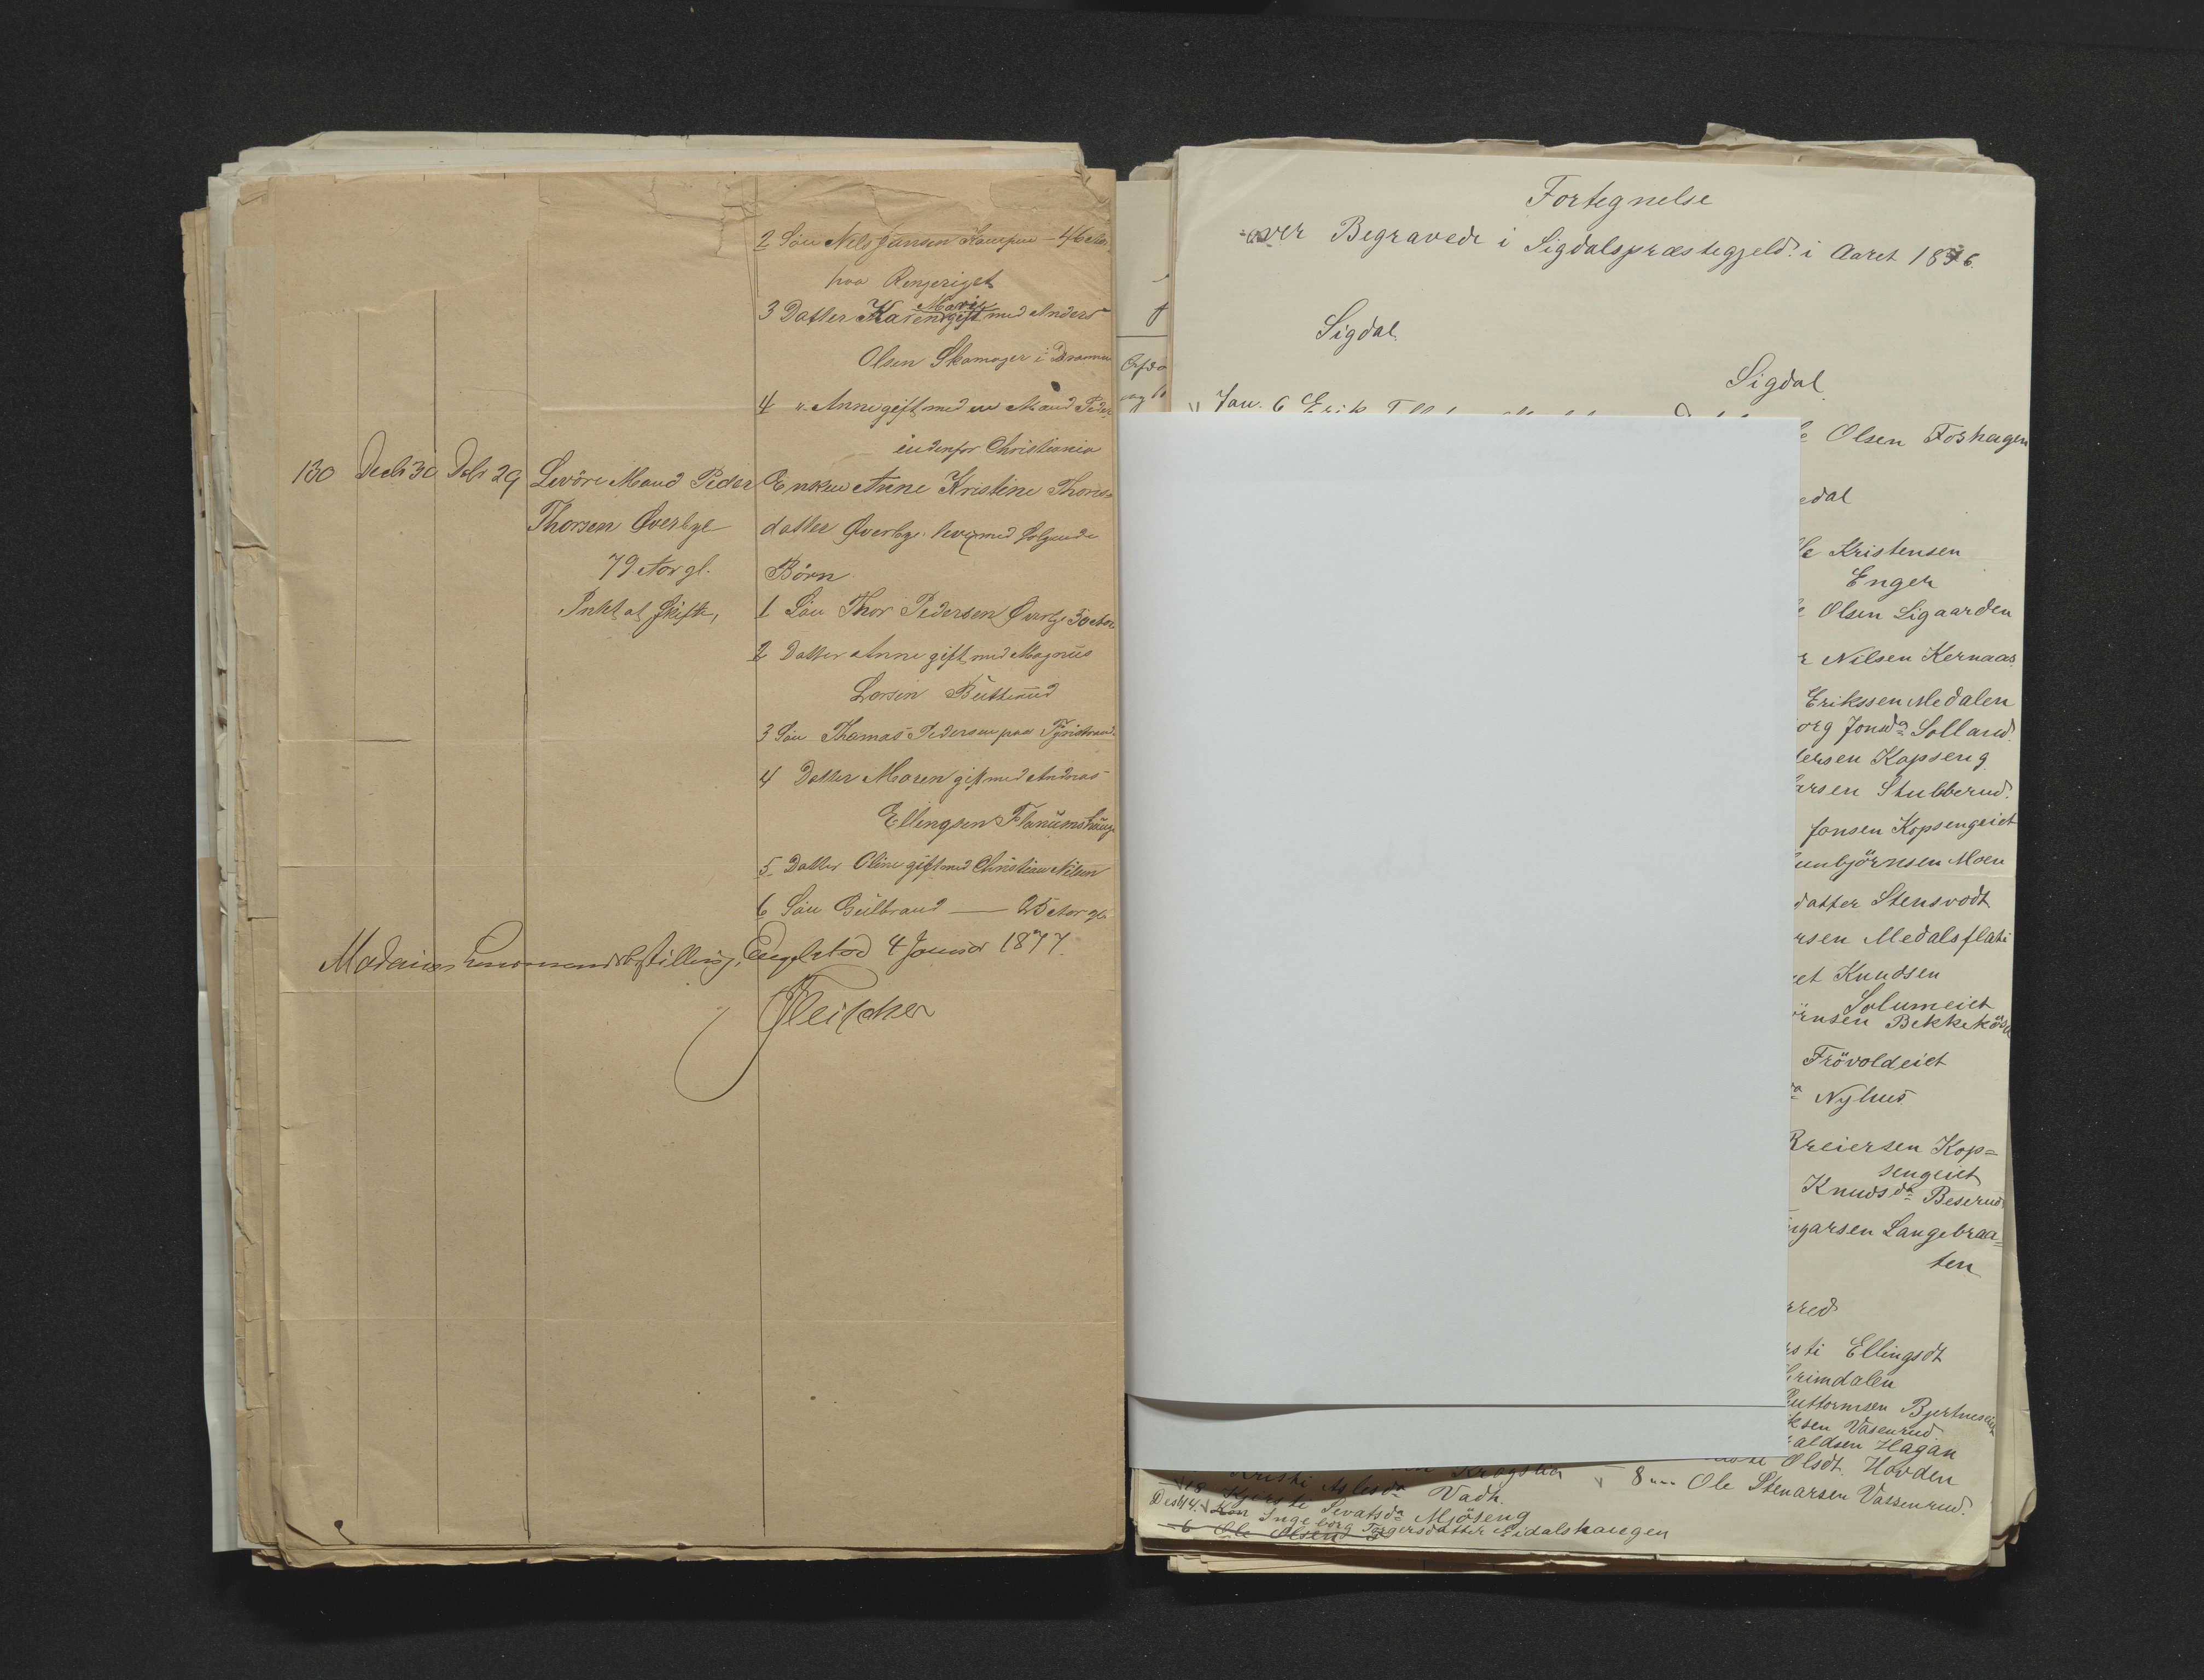 2 Søn Nils Jansen
paa Ringeriget
3 Datter Karen Marie gift med Anders
Olsen Skomager i Dramm
4 " Anne gift med en Mand Peder
indenfor Christiania
130 Decbr 30 Dcbr 29 Mand Peder Enken Anne Kristine Thores=
Thorsen Øverbye datter Øverbye. med følgende
79 Aar gl. Börn
af Skifte, 1 Søn Thor Pedersen Øverbye
2 Datter Anne gift med Magnus
Larsen
3 Søn Thomas Pedersen paa Tyristrand
4 Datter Maren gift med Andreas
Ellingsen
5 Datter Oline gift med Christian Nilsen
6 Søn Gulbrand — 25 Aar gl.
Modums Lensmandsbestilling, Engelstad 4 Januar 1877.
Fleischer
Fortegnelse
over Begravede i Sigdalspræstegjeld i Aaret 1876.
Sigdal
Sigdal
Jan. 6 Erik
Olsen Foshagen
edal
le Kristensen
Enger
Olsen Ligaarden
Nilsen Kernaas
Erikssen Medalen
org Jonsda Solland
ersen Kopseng
arsen Stubberud.
Jonsen Kopsengeiet
unbjörnsen Moen
datter Stensvodt
rsen Medalsflati
et Knudsen
Solumeiet
örnsen
Frövoldeiet
Nyhus
Breiersen Kop=
sengeiet
Knudsda Beserud
ngarsen Langebraa=
ten
rred
sti Ellingsdt
Grimdalen
Guttormsen
ksen Vasenrud
aldsen Hagan
Olsdt. Hovden
Kristi Aslesda 8 " Ole Stenarsen Vassenrud.
18 Kjersti Sevatsda Vadh.
Desb 14. Ingeborg Torgersdatter Eidalshaugen
Mjöseng
6 Ole Olsen